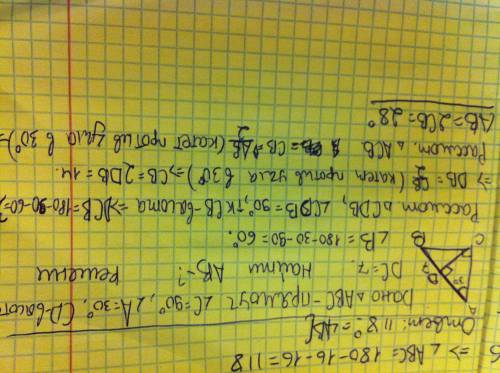 => ∠ABC = 180-16-16 = 118
Ответ: 118° = ∠ABC
Дано △ABC - прямоуг ∠C = 90°, ∠A = 30°, CD - высот
DC = 7. Найти AB - ? Решени
∠B = 180-30-90 = 60°.
Рассмот △CDB, ∠CDB = 90°, тк CB - высота => ∠DCB = 180-90-60 =
=> DB = CB/2 (катет против угла в 30°) => CB = 2DB = 14.
Рассмот. △ACB. CB = AB/2 (катет против угла в 30°) =
AB = 2CB = 28°
A
D
7
C
B